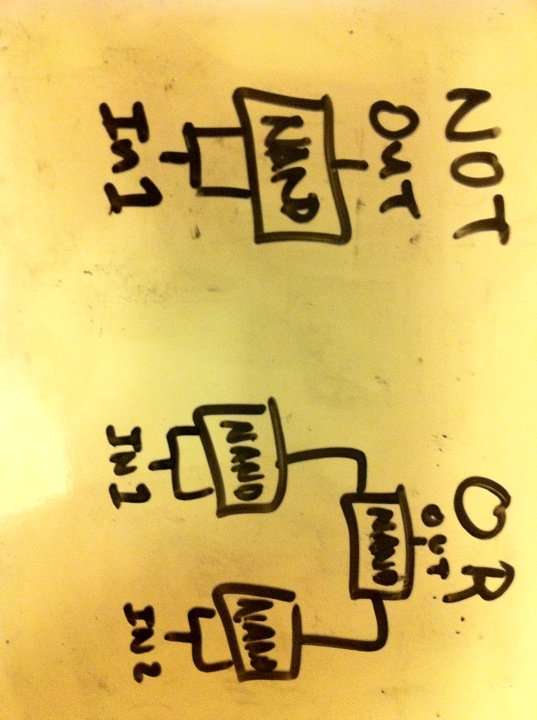 NOT
OUT
NAND
In1
OR
OUT
NAND
NAND
NAND
IN1
IN2